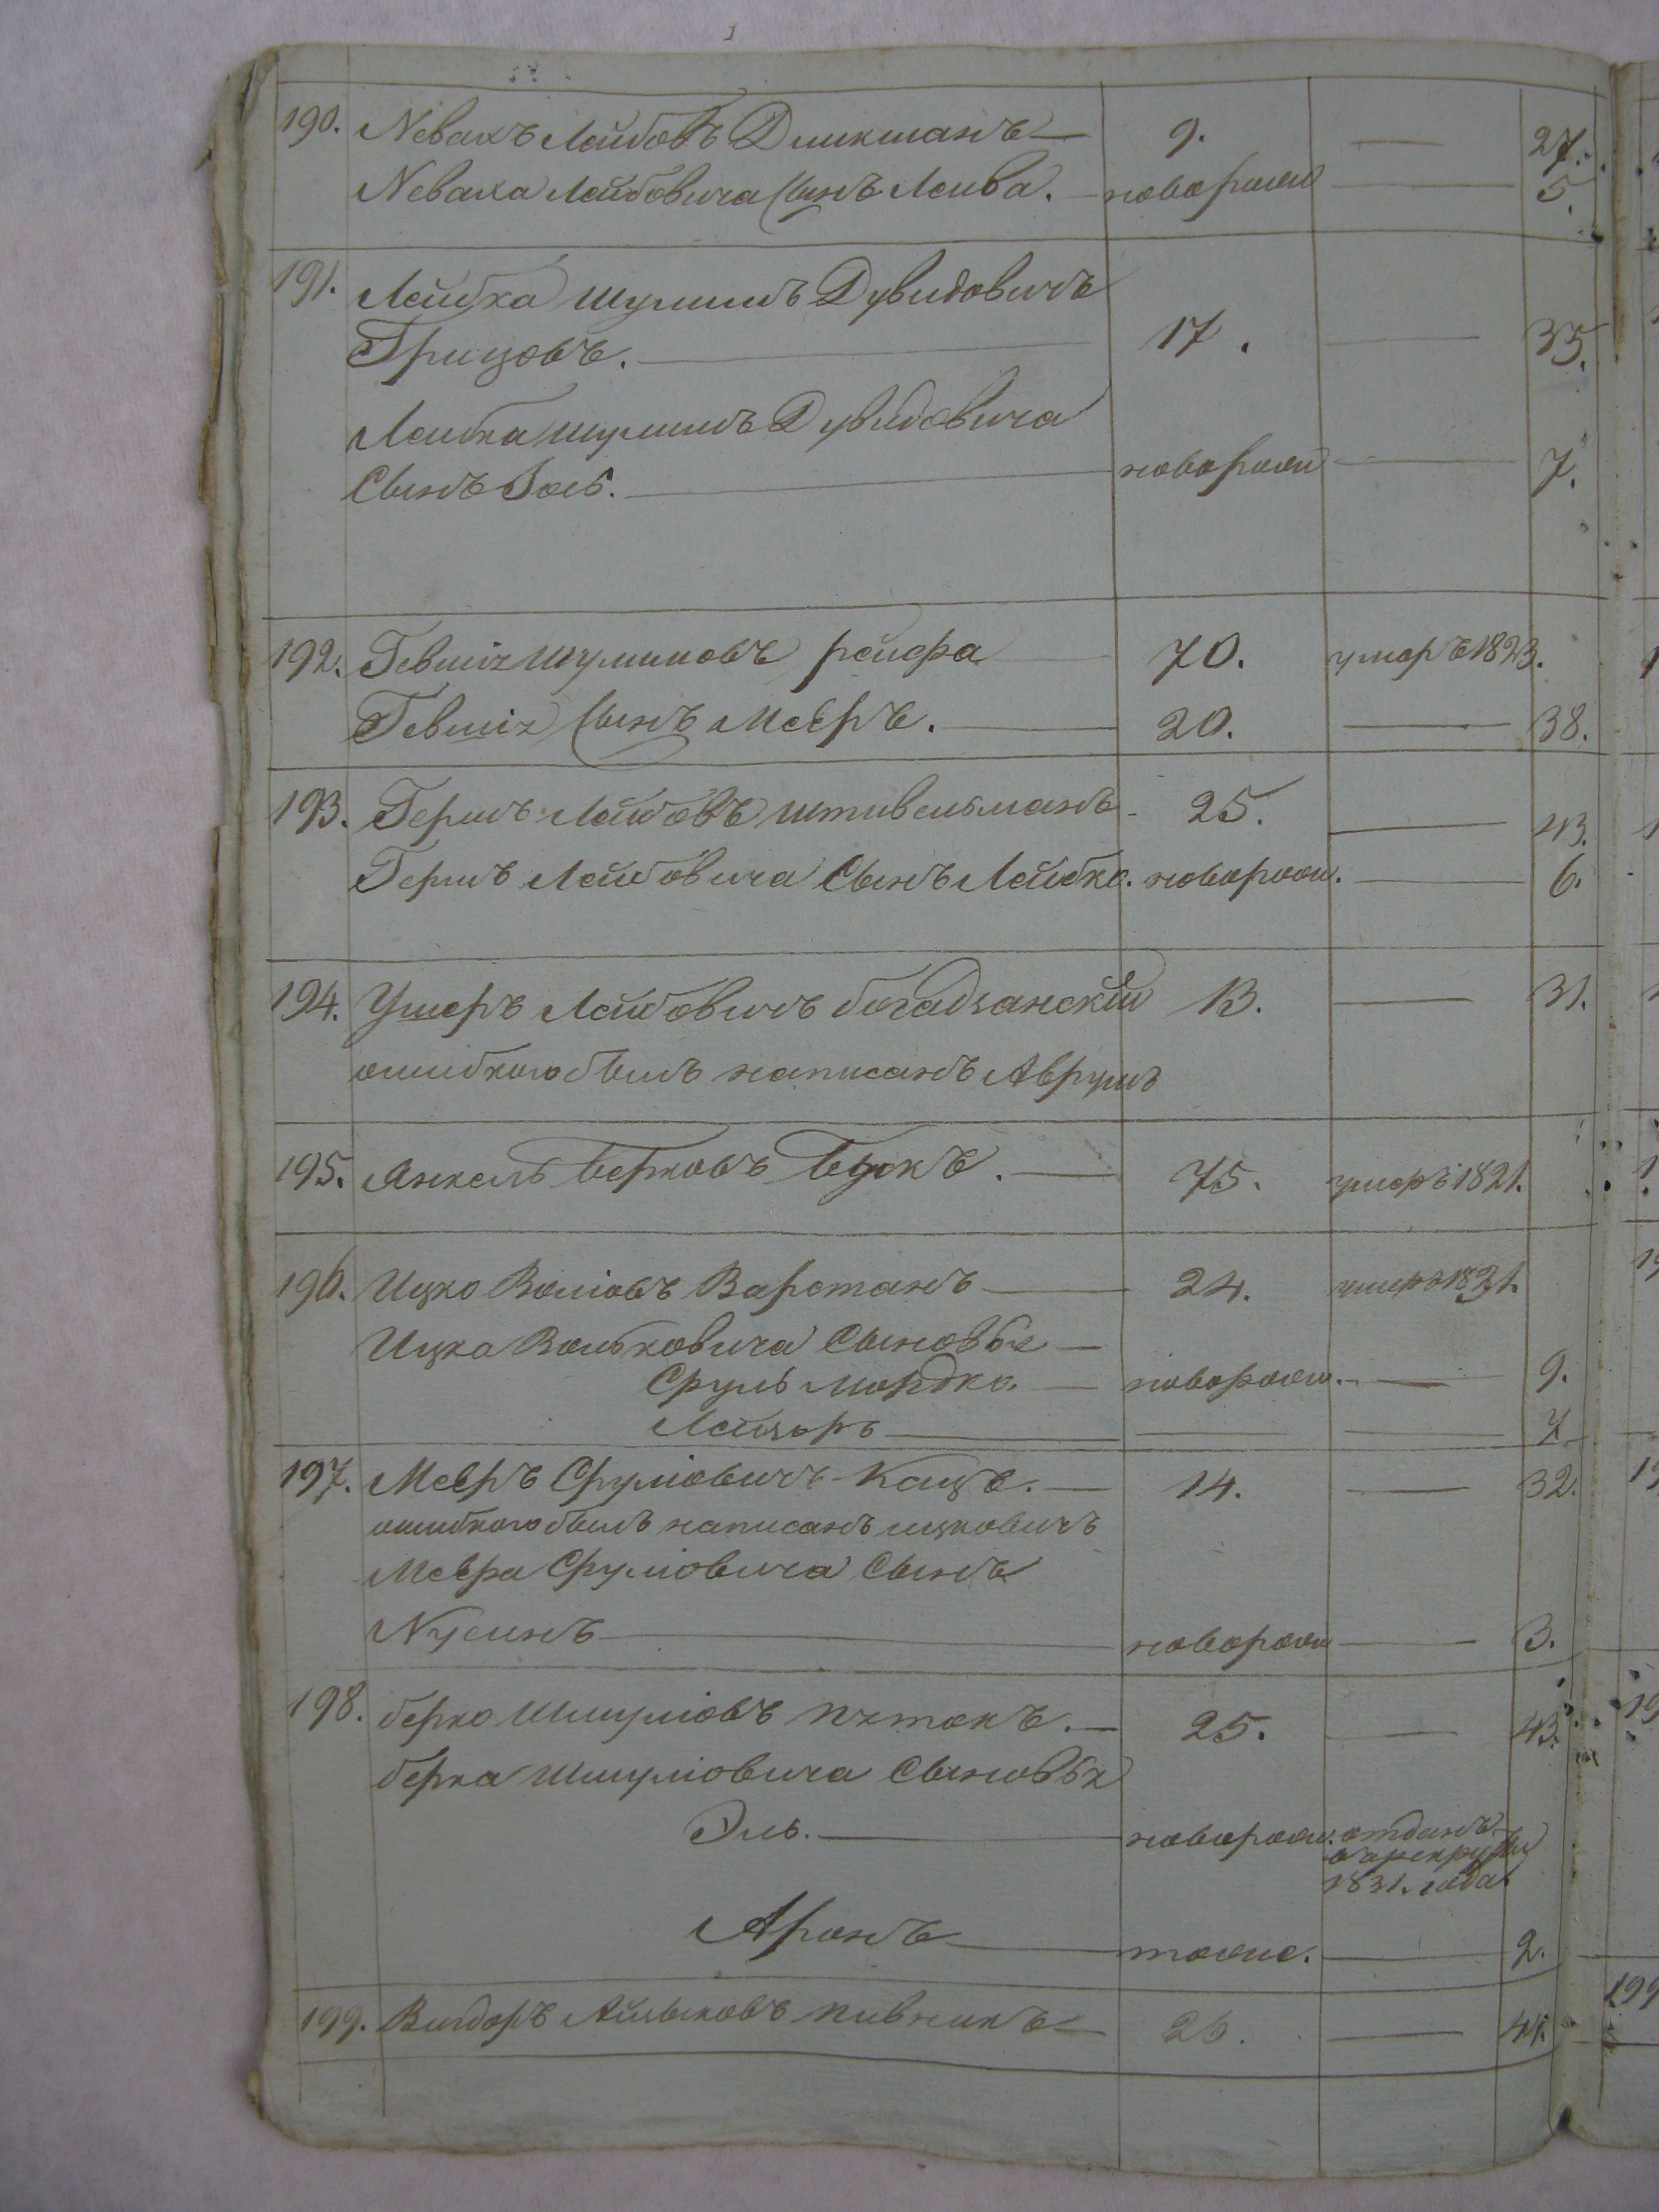 190. Невахъ Лейбовъ Дикманъ — 9. — 27.
Неваха Лейбовича Сынъ Лейба. — новорожд — 5.
191. Лейбка Шулимъ Дувидовичъ
Грицовъ. — 17. — 35.
Лейбка Шулимъ Дувидовича
Сынъ — новорожд — 7.
192. Гевшіхъ Шулимовъ рейфа — 70. умеръ 1823.
Гевшіх Сынъ Меѣръ. — 20. — 38.
193. Гершъ Лейбовъ Штивельманъ — 25. — 43.
Гершъ Лейбовича Сынъ Лейбка. новорожд. — 6.
194. Ушеръ Лейбовичъ богадзанскій 13. — 31.
ошибкою былъ написанъ Аврумъ
195. Янкель Берковъ — 75. умеръ 1821.
196. Ицко Воліовъ Варстанъ — 24. умеръ 1821.
Ицка Вольковича Сыновья —
Сруль Мордко. — новорожд. — 9.
Лейзоръ — 7
197. Меѣръ Сруліовичъ Кацъ. — 14. — 32.
ошибкою былъ написанъ ицковичъ
Меѣра Сруліовича Сынъ
Нусинъ — новорожд — 3.
198. берко Шмуліовъ Пятакъ. — 25. — 43.
берка Шмуліовича Сыновья
Эль. — новорожд. отданъ
в рекруты
1831. года.
Аронъ — тоже. — 2.
199. Вигдоръ Айзыковъ Пивникъ — 26. — 44.